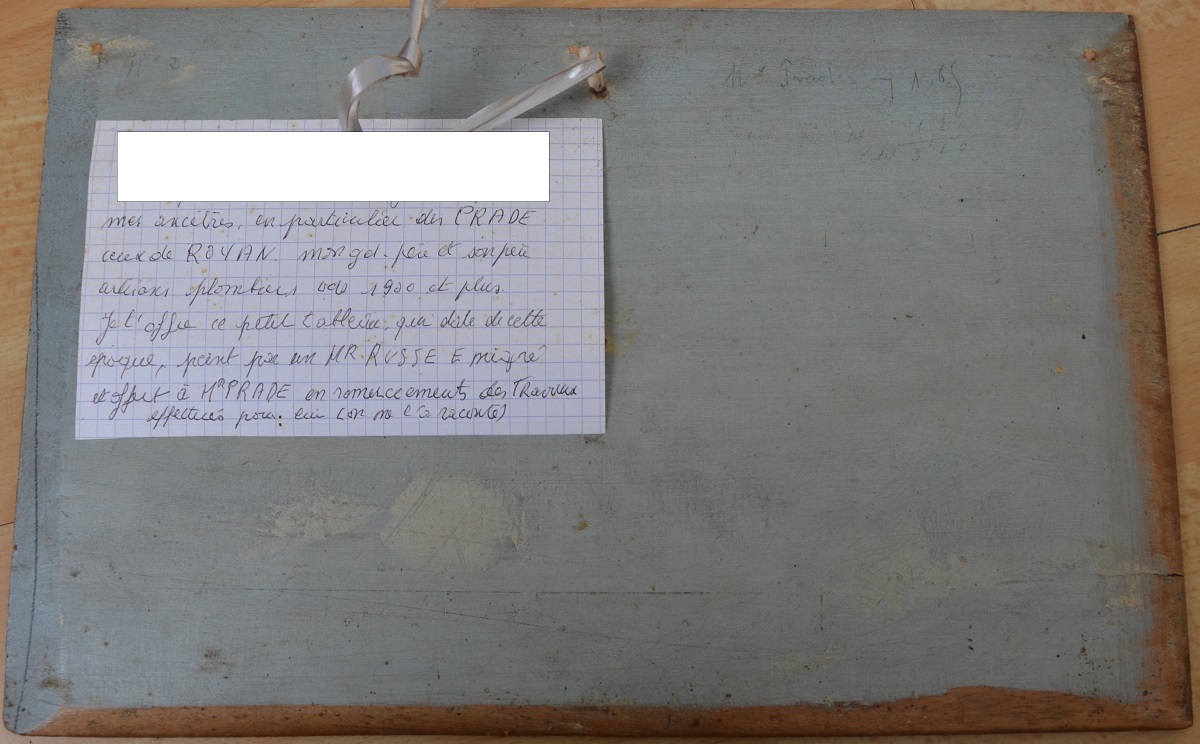 N° 2
Mr Prade
mes ancêtres, en particulier des PRADE
ceux de ROYAN. mon gd. père et son père
artisans plombiers 1900 et plus
Je t'offre ce petit tableau, qui date de cette
époque, peint par un MR RUSSE Emigré
et offert à Mr PRADE en remerciements des Travaux
effectués pour lui (on me l'a raconté)